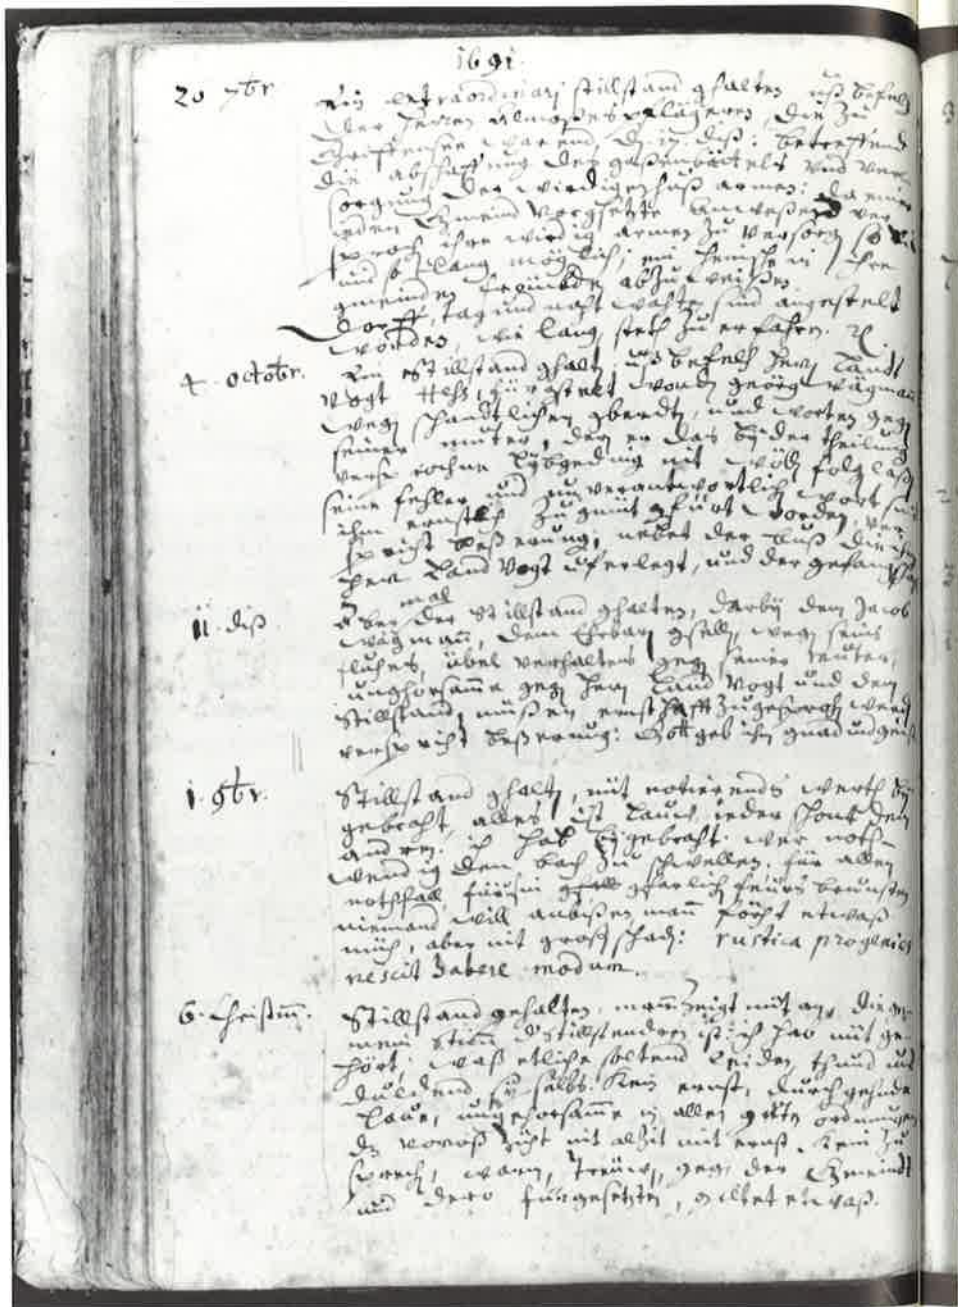 1691.
20 7br Ein extraordinari stillstand ghalten uß befelch
der herren Almosespflägeren, die zu
Griffensee warend, d. 17. diß: betreffend
die abschaffung deß gaßenbättels und ver
sorgung der wirdigen huß armen: da einer
ieden Gmeind vorgsetzte
sproch ihre wirdig armen zu versorgen so
und so lang möglich; ein heimsche in ihre
gmeinden frömbden abzuweißen
dorff, tag und nacht wachten sind angestelt
worden, wie lang, steth zu erfahren.
4. octobr. Ein stillstand ghalten uß befelch herren Land
vogt Heß, fürgstelt worden geörg wägman
wegen schandtlichen gberden, und worten gegen
seiner muter, deren er das by der theilung
versprochne Lybgeding nit wölle folgen laßen
seine fehler und unverantwortlich wort sind
ihm ernstlich zu gmüt gfürt worden, ver
spricht beßerung, nebet der buß die ihm
herr Land Vogt uferlegt, und der gefangschafft
11. diß aber mal der stillstand ghalten, darby dem Jacob
wägman, dem Ehrbaren gsellen, wegen seins
fluches, übel verhaltens gegen seiner muter,
unghorsamme gegen herrn Land Vogt und dem
Stillstand, müßen ernsthafft zugesprochen werden
verspricht beßerung: Gott geb ihm gnad und geist
1. 9br. Stillstand ghalten, nüt notierends werth by
gebracht, alles ist lauw, ieder schont dem
andren. ich hab bygebracht wer noth-
wendig den bach zu schwellen, für allen
nothfall, fürsin gfarlich feürs brunsten
niemand will anbißen man förcht etwaß
müh, aber nit großen schaden: rustica progenies
nescit habere modum.
6. Christm. Stillstand gehalten, man zeigt nüt an, die ge
mein stim d stillstenderen ist: ich hab nüt ge
hört; waß etliche soltend leiden, thund und
duldend sy selbs. Kein ernst, durchgehnde
Laue, ungehorsamme in allen guten ordnungen
kein zu
sprechen, warnen, träuwen, gegen der Gmeindt
und dero fürgesetzten, giltet etwaß.